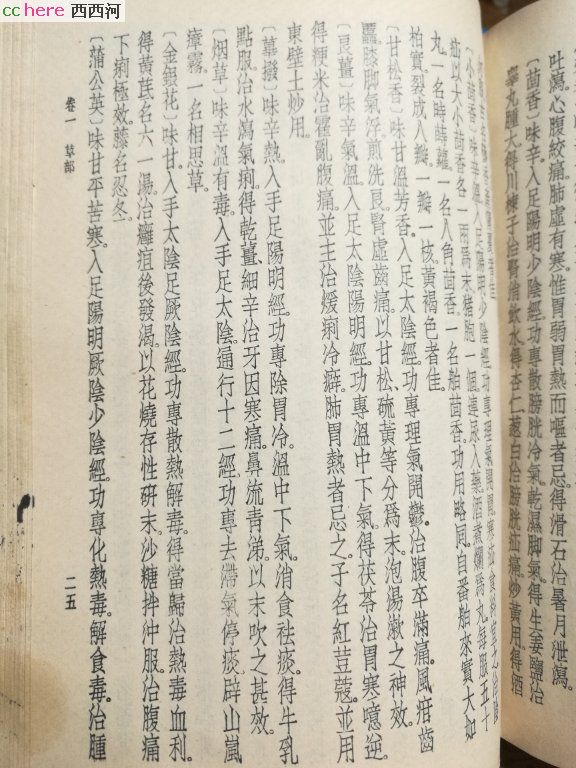 cchere 西西河
吐瀉。心腹絞痛。肺虛有寒。惟胃熱而嘔者忌。得滑石治暑月泄瀉。
〔茴香〕味辛。入足陽明少陰經。功專散膀胱冷氣。乾濕脚氣。得生姜鹽治
睾丸腫大。得川楝子治腎消飲水。得杏仁葱白治膀胱疝痛。炒黃用。得酒
者佳
〔小茴香〕味辛溫。入足陽明少陰經。功專理氣開胃。寒疝食料宜之。治陰
疝。以大小茴香各一兩爲末。猪胞一個。連尿入藥。酒煮爛爲丸。每服五十
丸。一名時蘿。一名八角茴香。一名舶茴香。功用略同。自番舶來。實大如
柏實。裂成八瓣。一瓣一核。黃褐色者佳。
〔甘松香〕味甘溫芳香。入足太陰經。功專理氣開鬱。治腹卒滿痛。風疳齒
䘌。膝脚氣浮。煎洗良。腎虛齒痛。以甘松、硫黃等分爲末。泡湯漱之神效。
〔良薑〕味辛氣溫。入足太陰陽明經。功專溫中下氣。得茯苓治胃寒噫逆。
得粳米治霍亂腹痛。並主治緩痢冷癖。肺胃熱者忌之。子名紅荳蔻。並用
東壁土炒用。
〔蓽撥〕味辛熱。入手足陽明經。功專除胃冷。溫中下氣。消食祛痰。得牛乳
點服。治水瀉氣痢。得乾薑、細辛治牙因寒痛。鼻流青涕。以末吹之甚效。
〔烟草〕味辛溫有毒。入手足太陰。通行十二經。功專去滯氣停痰。辟山嵐
瘴霧。一名相思草。
〔金銀花〕味甘。入手太陰足厥陰經。功專散熱解毒。得當歸治熱毒血利。
得黃芪名六一湯。治癰疽後發渴。以花燒存性研末。沙糖拌沖服。治腹痛
下痢極效。藤名忍冬。
〔蒲公英〕味甘平苦寒。入足陽明厥陰少陰經。功專化熱毒。解食毒。治腫
卷一 草部
二五